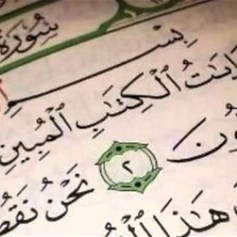 سُورَةُ
بِسْـ
ءَايَٰتُ ٱلْكِتَٰبِ ٱلْمُبِينِ
ونَ ٢ نَحْنُ نَقُصُّ
هَٰذَا